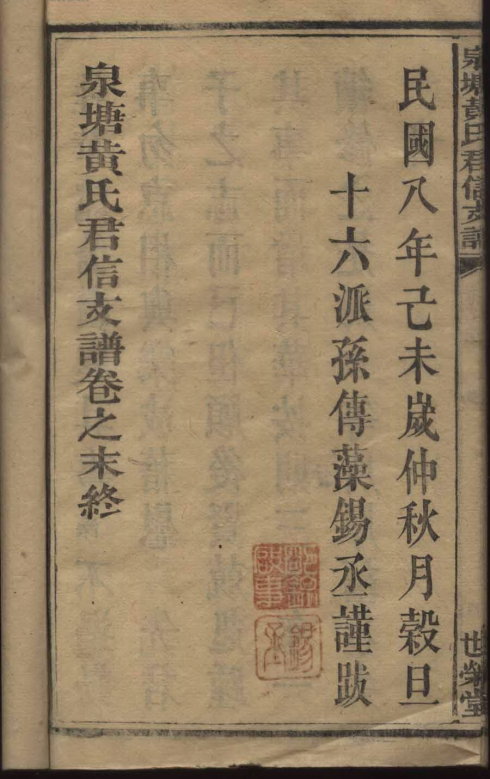 泉塘黃氏君信支譜
世榮堂
民國八年己未歲仲秋月穀旦
十六派孫傳藻錫丞謹跋
泉塘黃氏君信支譜卷之末終